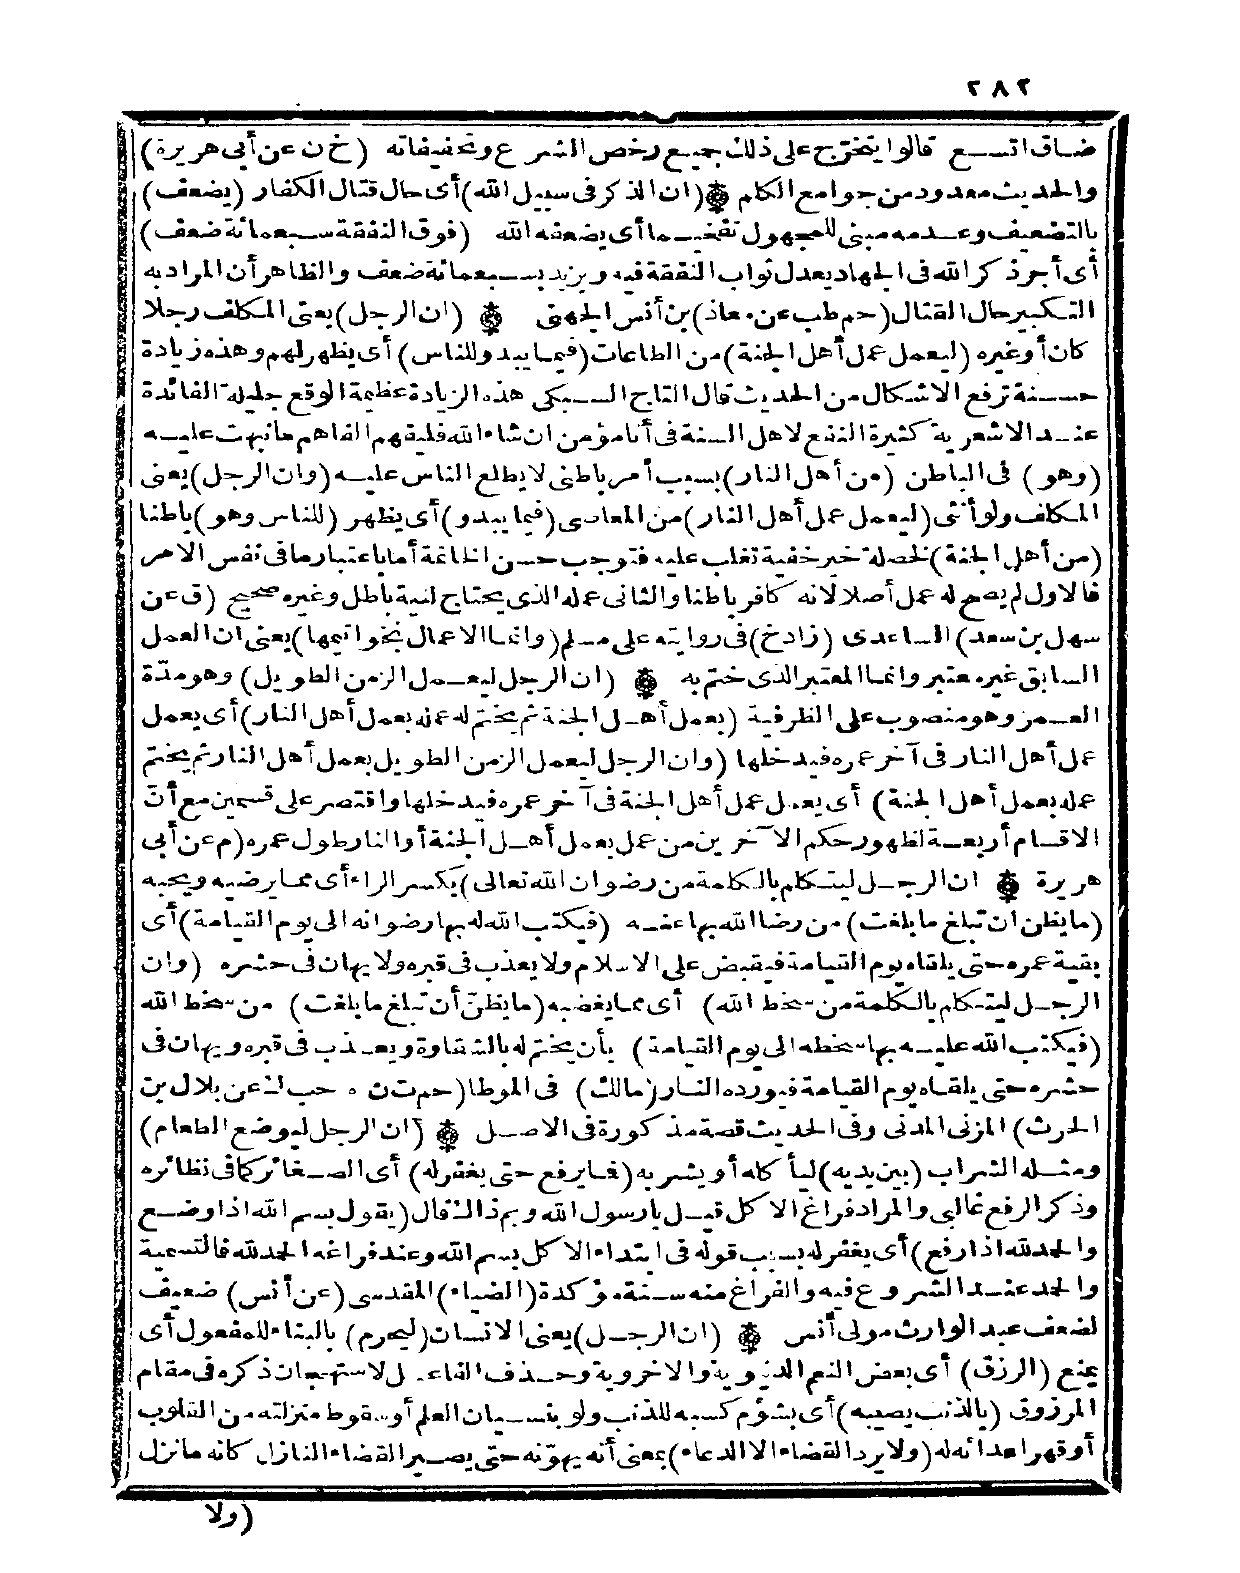 ٢٨٢
ضاق اتسع قالوا يتخرج على ذلك جميع رخص الشرع وتخفيفاته (خ ن عن أبى هريرة)
والحديث معدود من جوامع الكلم (ان الذكر فى سبيل الله) أى حال قتال الكفار (يضعف)
بالتضعيف وعدمه مبنى للمجهول تفخيما أى يضعفه الله (فوق النفقة سبعمائة ضعف)
أى أجر ذكر الله فى الجهاد يعدل ثواب النفقة فيه ويزيد بسبعمائة ضعف والظاهر أن المراد به
التكبير حال القتال (حم طب عن معاذ) بن أنس الجهنى (ان الرجل) يعنى المكلف رجلا
كان أو غيره (ليعمل عمل أهل الجنة) من الطاعات (فيما يبدو للناس) أى يظهر لهم وهذه زيادة
حسنة ترفع الاشكال من الحديث قال التاج السبكى هذه الزيادة عظيمة الوقع جليلة الفائدة
عند الاشعرية كثيرة النفع لاهل السنة فى أنا مؤمن ان شاء الله فليفهم الفاهم ما نبهت عليه
(وهو) فى الباطن (من أهل النار) بسبب أمر باطنى لا يطلع الناس عليه (وان الرجل) يعنى
المكلف ولو أنثى (ليعمل عمل أهل النار) من المعاصى (فيما يبدو) أى يظهر (للناس وهو) باطنا
(من أهل الجنة) لخصلة خير خفية تغلب عليه فتوجب حسن الخاتمة أما باعتبار ما فى نفس الامر
فالاول لم يصح له عمل أصلا لانه كافر باطنا والثانى عمله الذى يحتاج لنية باطل وغيره صحيح (ق عن
سهل بن سعد) الساعدى (زاد خ) فى روايته على مسلم (وانما الاعمال بخواتيمها) يعنى ان العمل
السابق غير معتبر وانما المعتبر الذى ختم به (ان الرجل ليعمل الزمن الطويل) وهو مدّة
العمر وهو منصوب على الظرفية (بعمل أهل الجنة ثم يختم له عمله بعمل أهل النار) أى يعمل
عمل أهل النار فى آخر عمره فيدخلها (وان الرجل ليعمل الزمن الطويل بعمل أهل النار ثم يختم
عمله بعمل أهل الجنة) أى يعمل عمل أهل الجنة فى آخر عمره فيدخلها واقتصر على قسمين مع أنّ
الاقسام أربعة لظهور حكم الآخرين من عمل بعمل أهل الجنة أو النار طول عمره (م عن أبى
هريرة ان الرجل ليتكلم بالكلمة من رضوان الله تعالى) بكسر الراء أى مما يرضيه ويحبه
(ما يظن ان تبلغ ما بلغت) من رضا الله بها عنه (فيكتب الله له بها رضوانه الى يوم القيامة) أى
بقية عمره حتى يلقاه يوم القيامة فيقبض على الاسلام ولا يعذب فى قبره ولا يهان فى حشره (وان
الرجل ليتكلم بالكلمة من سخط الله) أى مما يغضبه (ما يظنّ أن تبلغ ما بلغت) من سخط الله
(فيكتب الله عليه بها سخطه الى يوم القيامة) بأن يختم له بالشقاوة ويعذب فى قبره ويهان فى
حشره حتى يلقاه يوم القيامة فيورده النار (مالك) فى الموطا (حم ت ن ه حب ك عن بلال بن
الحرث) المزنى المدنى وفى الحديث قصة مذكورة فى الاصل (ان الرجل ليوضع الطعام)
ومثله الشراب (بين يديه) ليأكله أو يشربه (فما يرفع حتى يغفر له) أى الصغائر كما فى نظائره
وذكر الرفع غالبى والمراد فراغ الاكل قيل يا رسول الله وبم ذاك قال (يقول بسم الله اذا وضع
والحمد لله اذا رفع) أى يغفر له بسبب قوله فى ابتداء الاكل بسم الله وعند فراغه الحمد لله فالتسمية
والحمد عند الشروع فيه والفراغ منه سنة مؤكدة (الضياء) المقدسى (عن أنس) ضعيف
لضعف عبد الوارث مولى أنس (ان الرجل) يعنى الانسان (ليحرم) بالبناء للمفعول أى
يمنع (الرزق) أى بعض النعم الدنيوية والاخروية وحذف الفاعل لاستهجان ذكره فى مقام
المرزوق (بالذنب يصيبه) أى بشؤم كسبه للذنب ولو بنسيان العلم أو سقوط منزلته من القلوب
أو قهر اعدائه له (ولا يرد القضاء الا الدعاء) بمعنى أنه يهوّنه حتى يصير القضاء النازل كانه ما نزل
(ولا